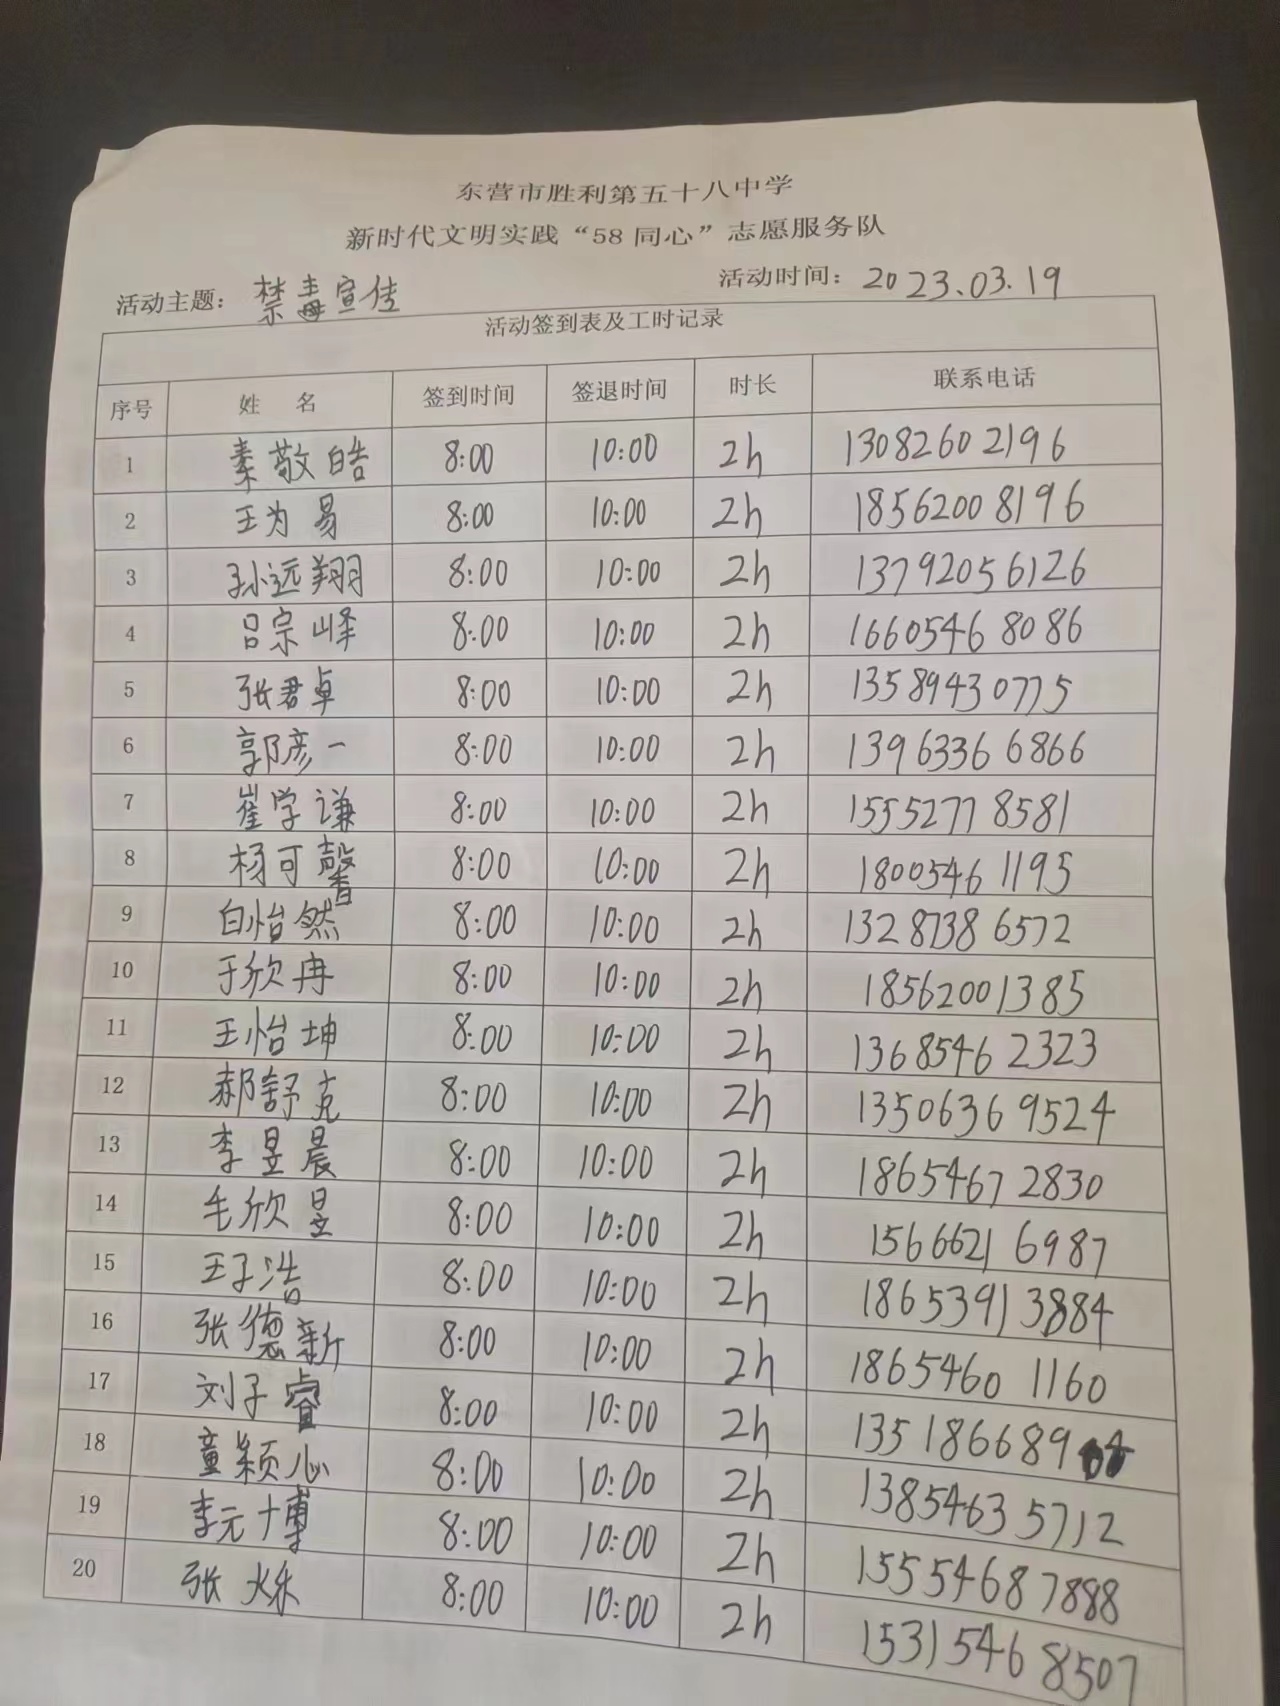 东营市胜利第五十八中学
新时代文明实践“58同心”志愿服务队
活动主题：禁毒宣传 活动时间：2023.03.19
活动签到表及工时记录
序号 姓名 签到时间 签退时间 时长 联系电话
1 秦敬皓 8:00 10:00 2h 13082602196
2 王为易 8:00 10:00 2h 18562008196
3 孙远翔 8:00 10:00 2h 13792056126
4 吕宗峰 8:00 10:00 2h 16605468086
5 张君卓 8:00 10:00 2h 13589430775
6 郭彦一 8:00 10:00 2h 13963366866
7 崔学谦 8:00 10:00 2h 15552778581
8 杨可馨 8:00 10:00 2h 18005461195
9 白怡然 8:00 10:00 2h 13287386572
10 于欣冉 8:00 10:00 2h 18562001385
11 王怡坤 8:00 10:00 2h 13685462323
12 郝舒克 8:00 10:00 2h 13506369524
13 李昱晨 8:00 10:00 2h 18654672830
14 毛欣昱 8:00 10:00 2h 15666216987
15 王子浩 8:00 10:00 2h 18653913884
16 张德新 8:00 10:00 2h 18654601160
17 刘子睿 8:00 10:00 2h
18 童颖心 8:00 10:00 2h 13854635712
19 李元博 8:00 10:00 2h 15554687888
20 张烁 8:00 10:00 2h 15315468507